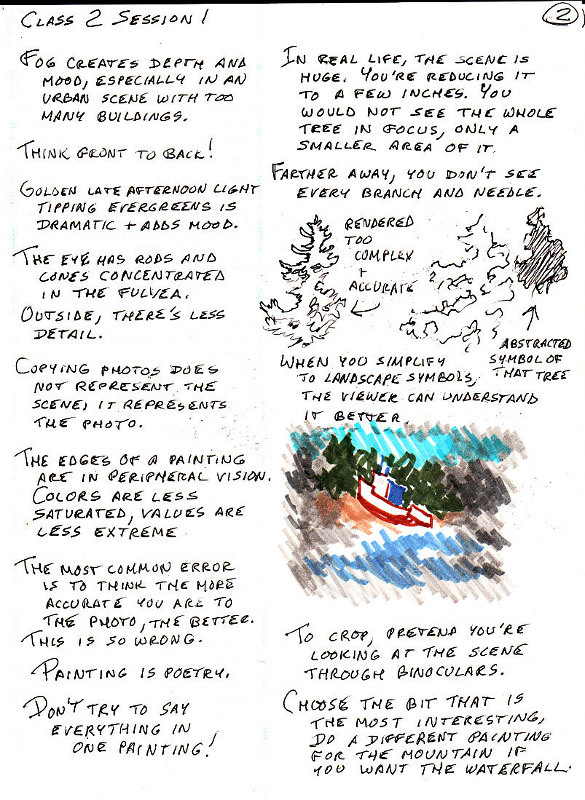 CLASS 2 SESSION 1
2
FOG CREATES DEPTH AND
MOOD, ESPECIALLY IN AN
URBAN SCENE WITH TOO
MANY BUILDINGS.
THINK FRONT TO BACK!
GOLDEN LATE AFTERNOON LIGHT
TIPPING EVERGREENS IS
DRAMATIC + ADDS MOOD.
THE EYE HAS RODS AND
CONES CONCENTRATED
IN THE FULVEA.
OUTSIDE, THERE'S LESS
DETAIL.
COPYING PHOTOS DOES
NOT REPRESENT THE
SCENE, IT REPRESENTS
THE PHOTO.
THE EDGES OF A PAINTING
ARE IN PERIPHERAL VISION.
COLORS ARE LESS
SATURATED, VALUES ARE
LESS EXTREME
THE MOST COMMON ERROR
IS TO THINK THE MORE
ACCURATE YOU ARE TO
THE PHOTO, THE BETTER.
THIS IS SO WRONG.
PAINTING IS POETRY.
DON'T TRY TO SAY
EVERYTHING IN
ONE PAINTING!
IN REAL LIFE, THE SCENE IS
HUGE. YOU'RE REDUCING IT
TO A FEW INCHES. YOU
WOULD NOT SEE THE WHOLE
TREE IN FOCUS, ONLY A
SMALLER AREA OF IT.
FARTHER AWAY, YOU DON'T SEE
EVERY BRANCH AND NEEDLE.
RENDERED
TOO
COMPLEX
+
ACCURATE
ABSTRACTED
SYMBOL OF
THAT TREE
WHEN YOU SIMPLIFY
TO LANDSCAPE SYMBOLS,
THE VIEWER CAN UNDERSTAND
IT BETTER.
TO CROP, PRETEND YOU'RE
LOOKING AT THE SCENE
THROUGH BINOCULARS.
CHOOSE THE BIT THAT IS
THE MOST INTERESTING,
DO A DIFFERENT PAINTING
FOR THE MOUNTAIN IF
YOU WANT THE WATERFALL.